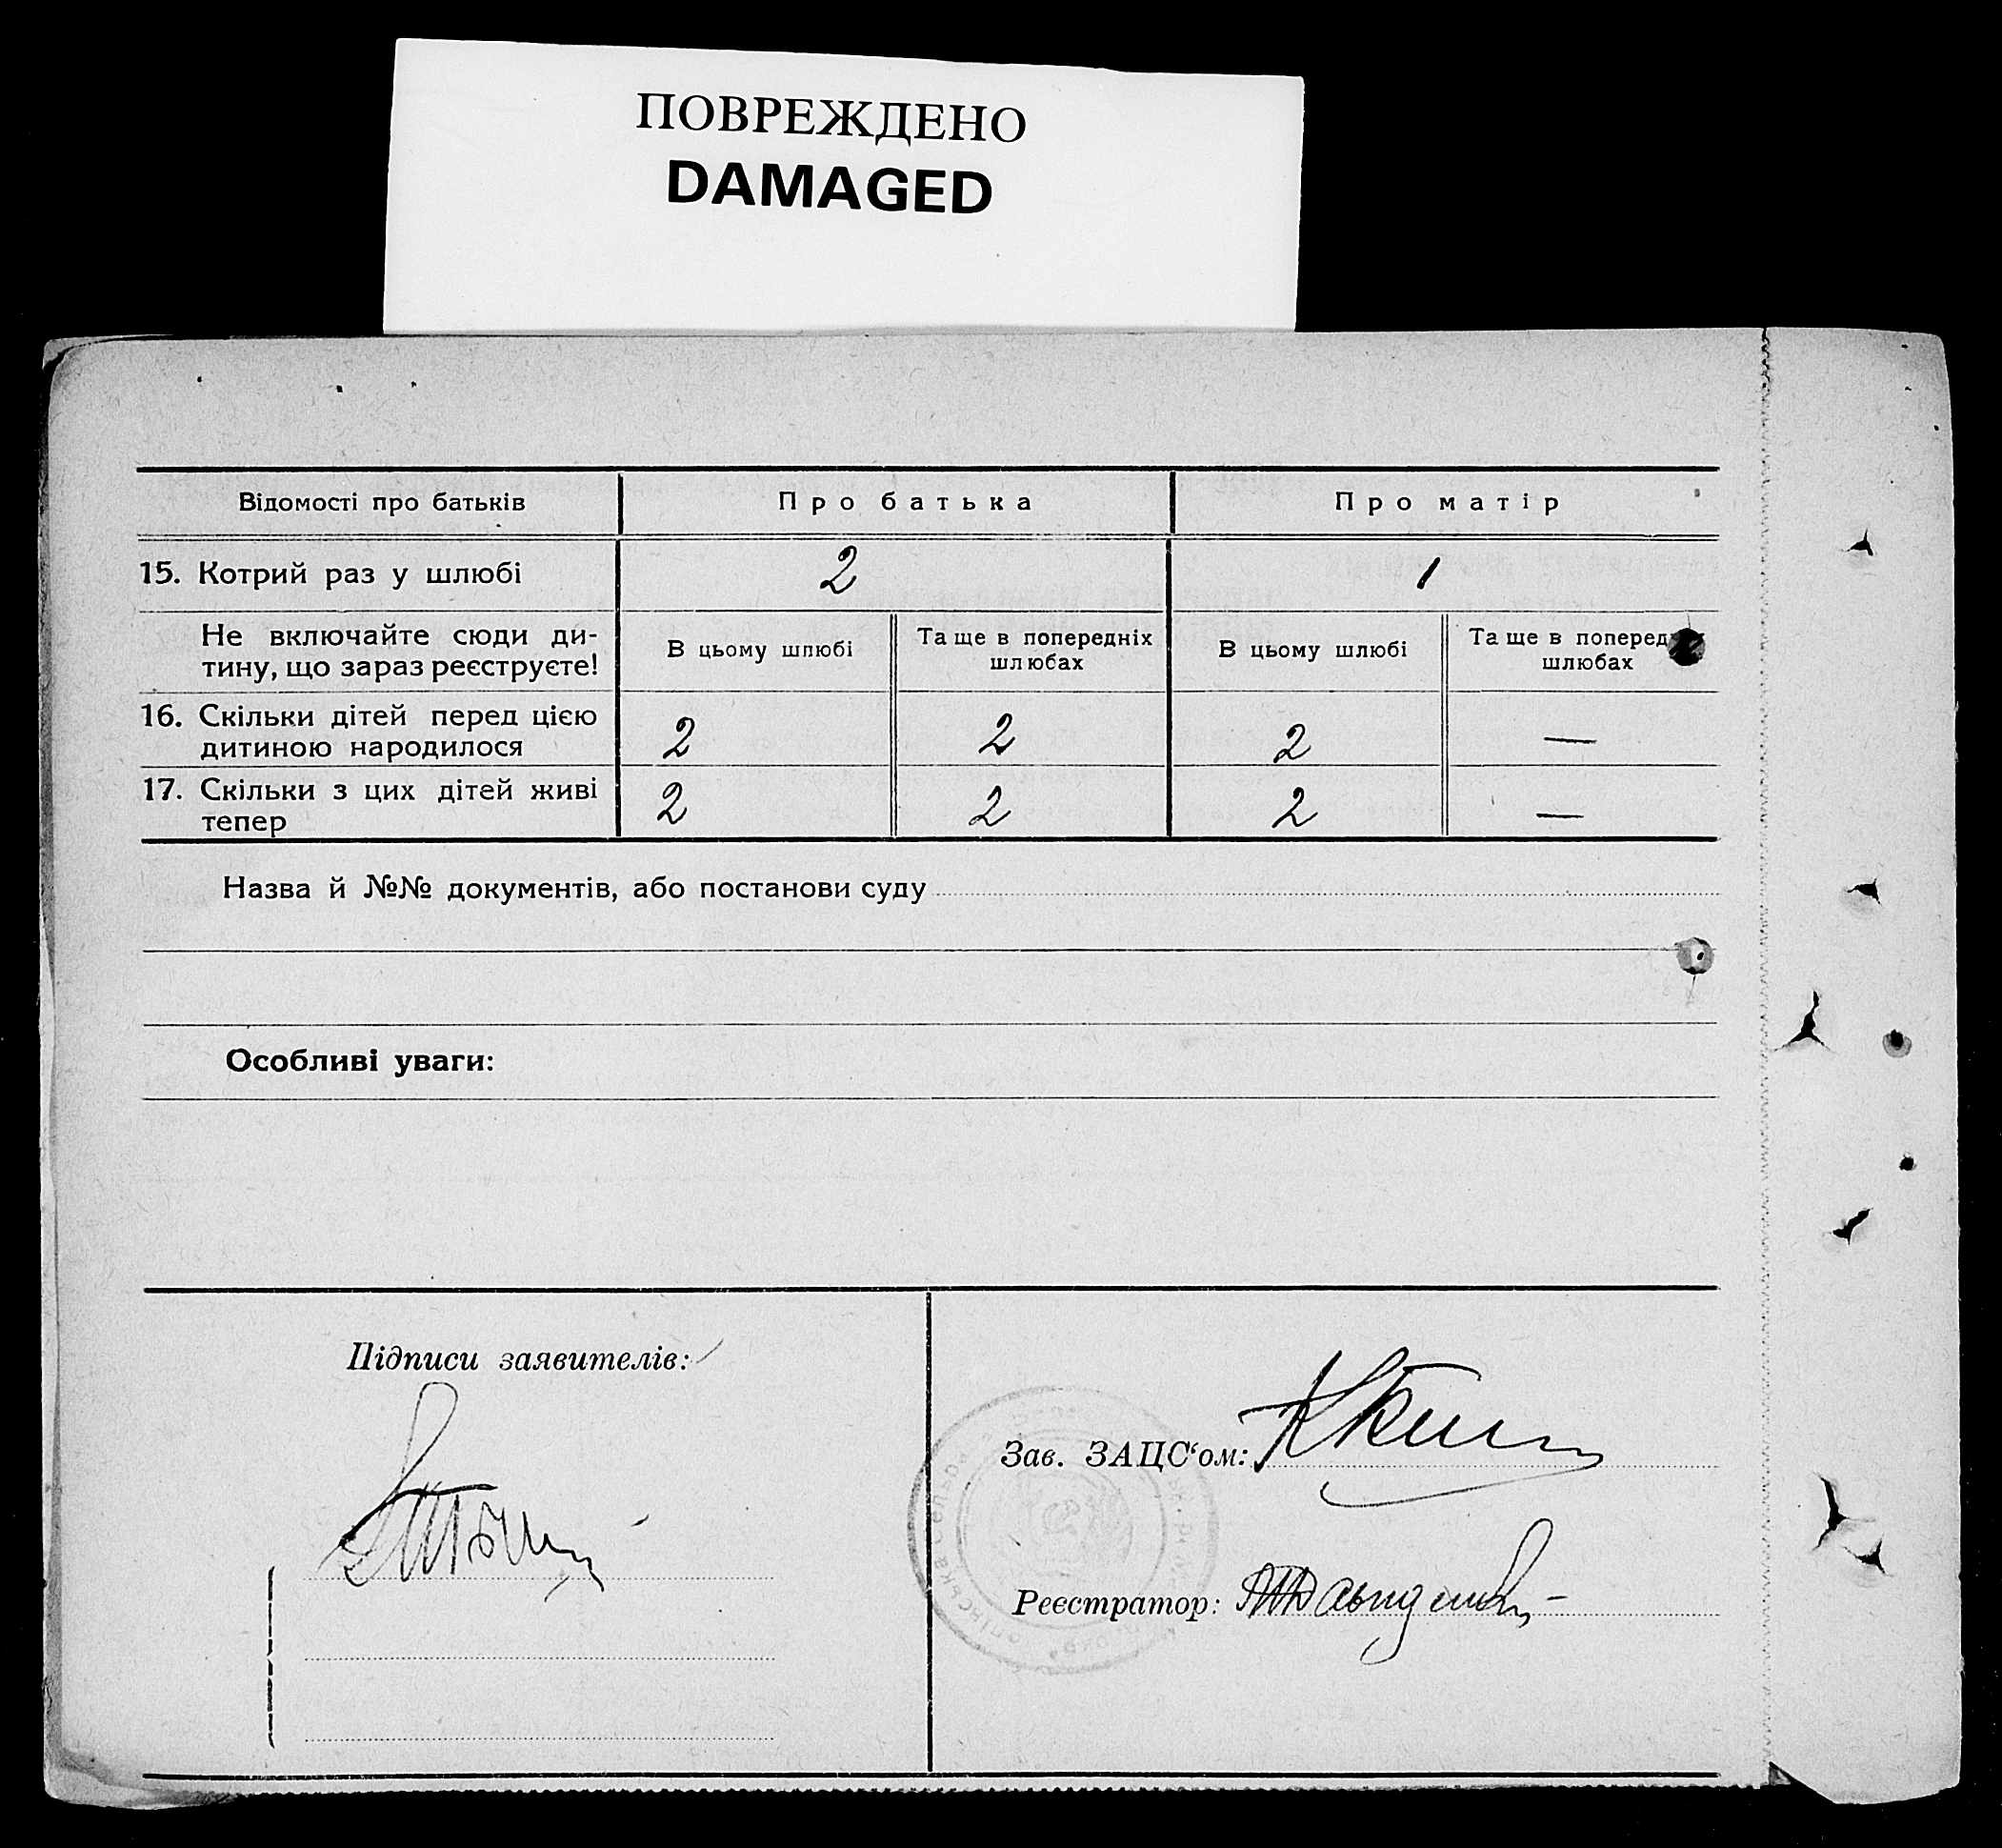 ПОВРЕЖДЕНО
DAMAGED
Відомості про батьків
Про батька
Про матір
15. Котрий раз у шлюбі
2
1
Не включайте сюди ди-
тину, що зараз реєструєте!
В цьому шлюбі
Та ще в попередніх
шлюбах
В цьому шлюбі
Та ще в поперед
шлюбах
16. Скільки дітей перед цією
дитиною народилося
2
2
2
—
17. Скільки з цих дітей живі
тепер
2
2
2
—
Назва й №№ документів, або постанови суду
Особливі уваги:
Підписи заявителів:
Зав. ЗАЦС‘ом:
Реєстратор: